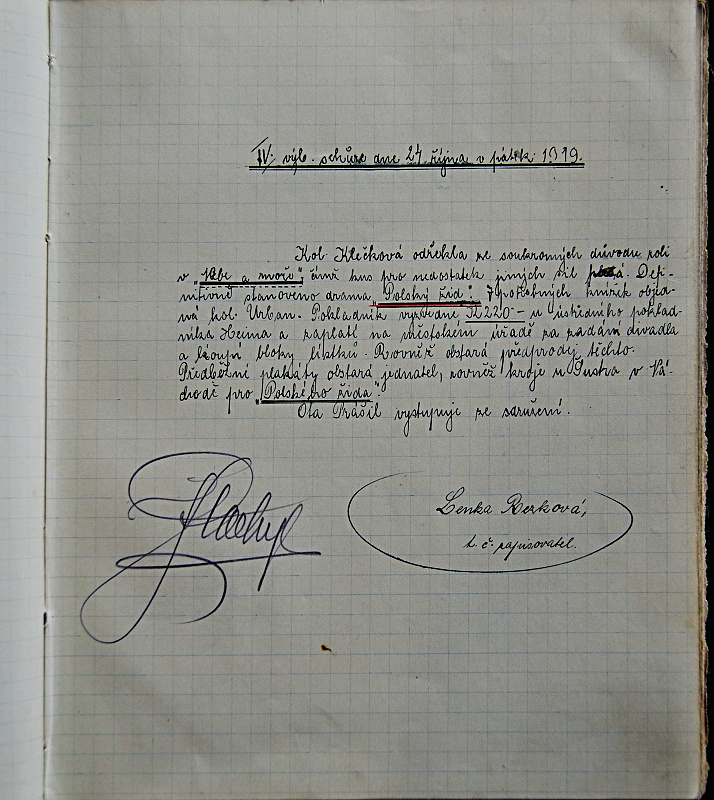 IV. výb. schůze dne 24. října v pátek 1919.
Kol. Klečková odřekla ze soukromých důvodu roli
v „Nebe a moře“, čímž kus pro nedostatek jiných sil padá. Defi-
nitivně stanoveno drama „Polský žid“. 7 potřebných knížek objed-
ná kol. Urban. Pokladník vyzvedne K 220 – u ústředního poklad-
níka Heima a zaplatí na městském úřadě za zadání divadla
a koupí bloky lístků. Rovněž obstará předprodej těchto.
Předběžné plakáty obstará jednatel, rovněž kroje u Šustra v Ná-
chodě pro „Polského žida“.
Ota Prášil vystupuje ze sdružení.
Lenka Rezková,
t. č. zapisovatel.